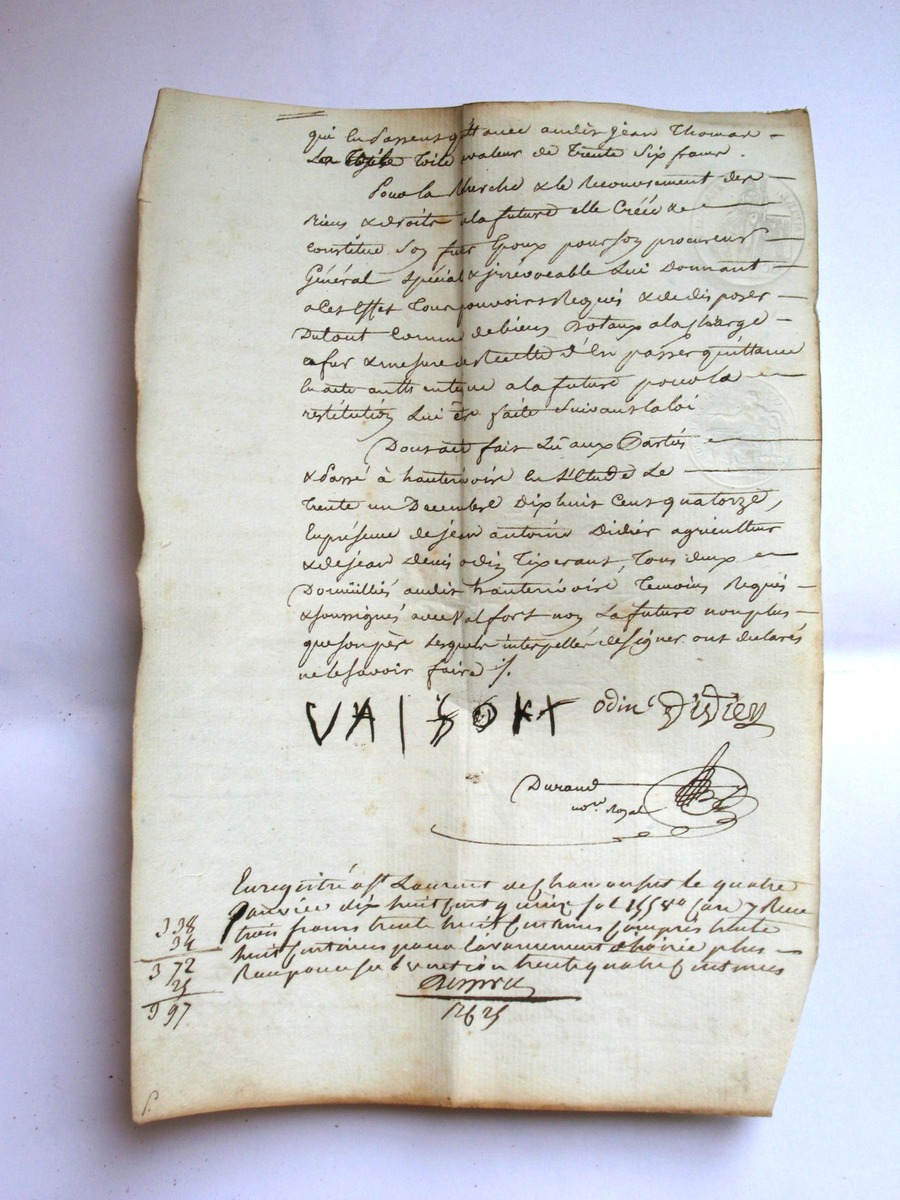 qui en passent quittance audit jean Thomas
La toile valeur de trente six francs.
Pour la Recherche & le Recouvrement des
Biens & droits a la future elle Créée &
Constitue Son futur Epoux pour son procureur
Général Spécial & irrévocable Lui Donnant
a Cet Effet tous pouvoirs Requis & de disposer
Du tout Comme de biens Dotaux a la charge
a fur & mesure de Recette d'En passer quittance
En acte authentique a la future pour la
restitution Lui être faite Suivant la loi
Dont acte fait Lû aux Parties
& Passé à hauterivoire En L'Etude Le
Trente un Decembre Dix huit Cent quatorze,
En présence de jean antoine Didier agriculteur
& de jean denis odin Tixerant, Tous deux
Domiciliés audit hauterivoire Temoins Requis
& soussignés avec Valfort non La future non plus
que son père Lesquels interpellés de signer ont declarés
ne le savoir faire /.
odin Didier
Durand
nore. Royal
Enregistré a St Laurent de Chamousset le quatre
Janvier dix huit cent quinze fol 155 Vo Case 7 Recu
338 trois francs trente huit Centimes Compris trente
34 huit Centimes pour
372 trente quatre Centimes
25
397